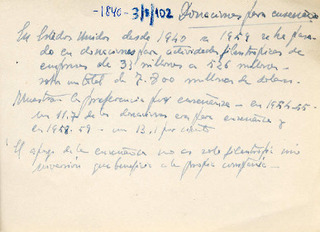 -1840- 3/8/102 Donaciones para enseñanza
En Estados Unidos desde 1940 a 1959 se ha pasa-
do en donaciones para actividades filantrópicas de
empresas de 31 millones a 526 millones -
sobre un total de 7.800 millones de dolares.
Muestran la preferencia por enseñanza - en 1954-55
un 11.7% de los donativos son para enseñanza y
en 1958-59 - un 13,1 por ciento
El apoyo de la enseñanza no es solo filantropía sino
inversión que beneficia a la propia compañía -